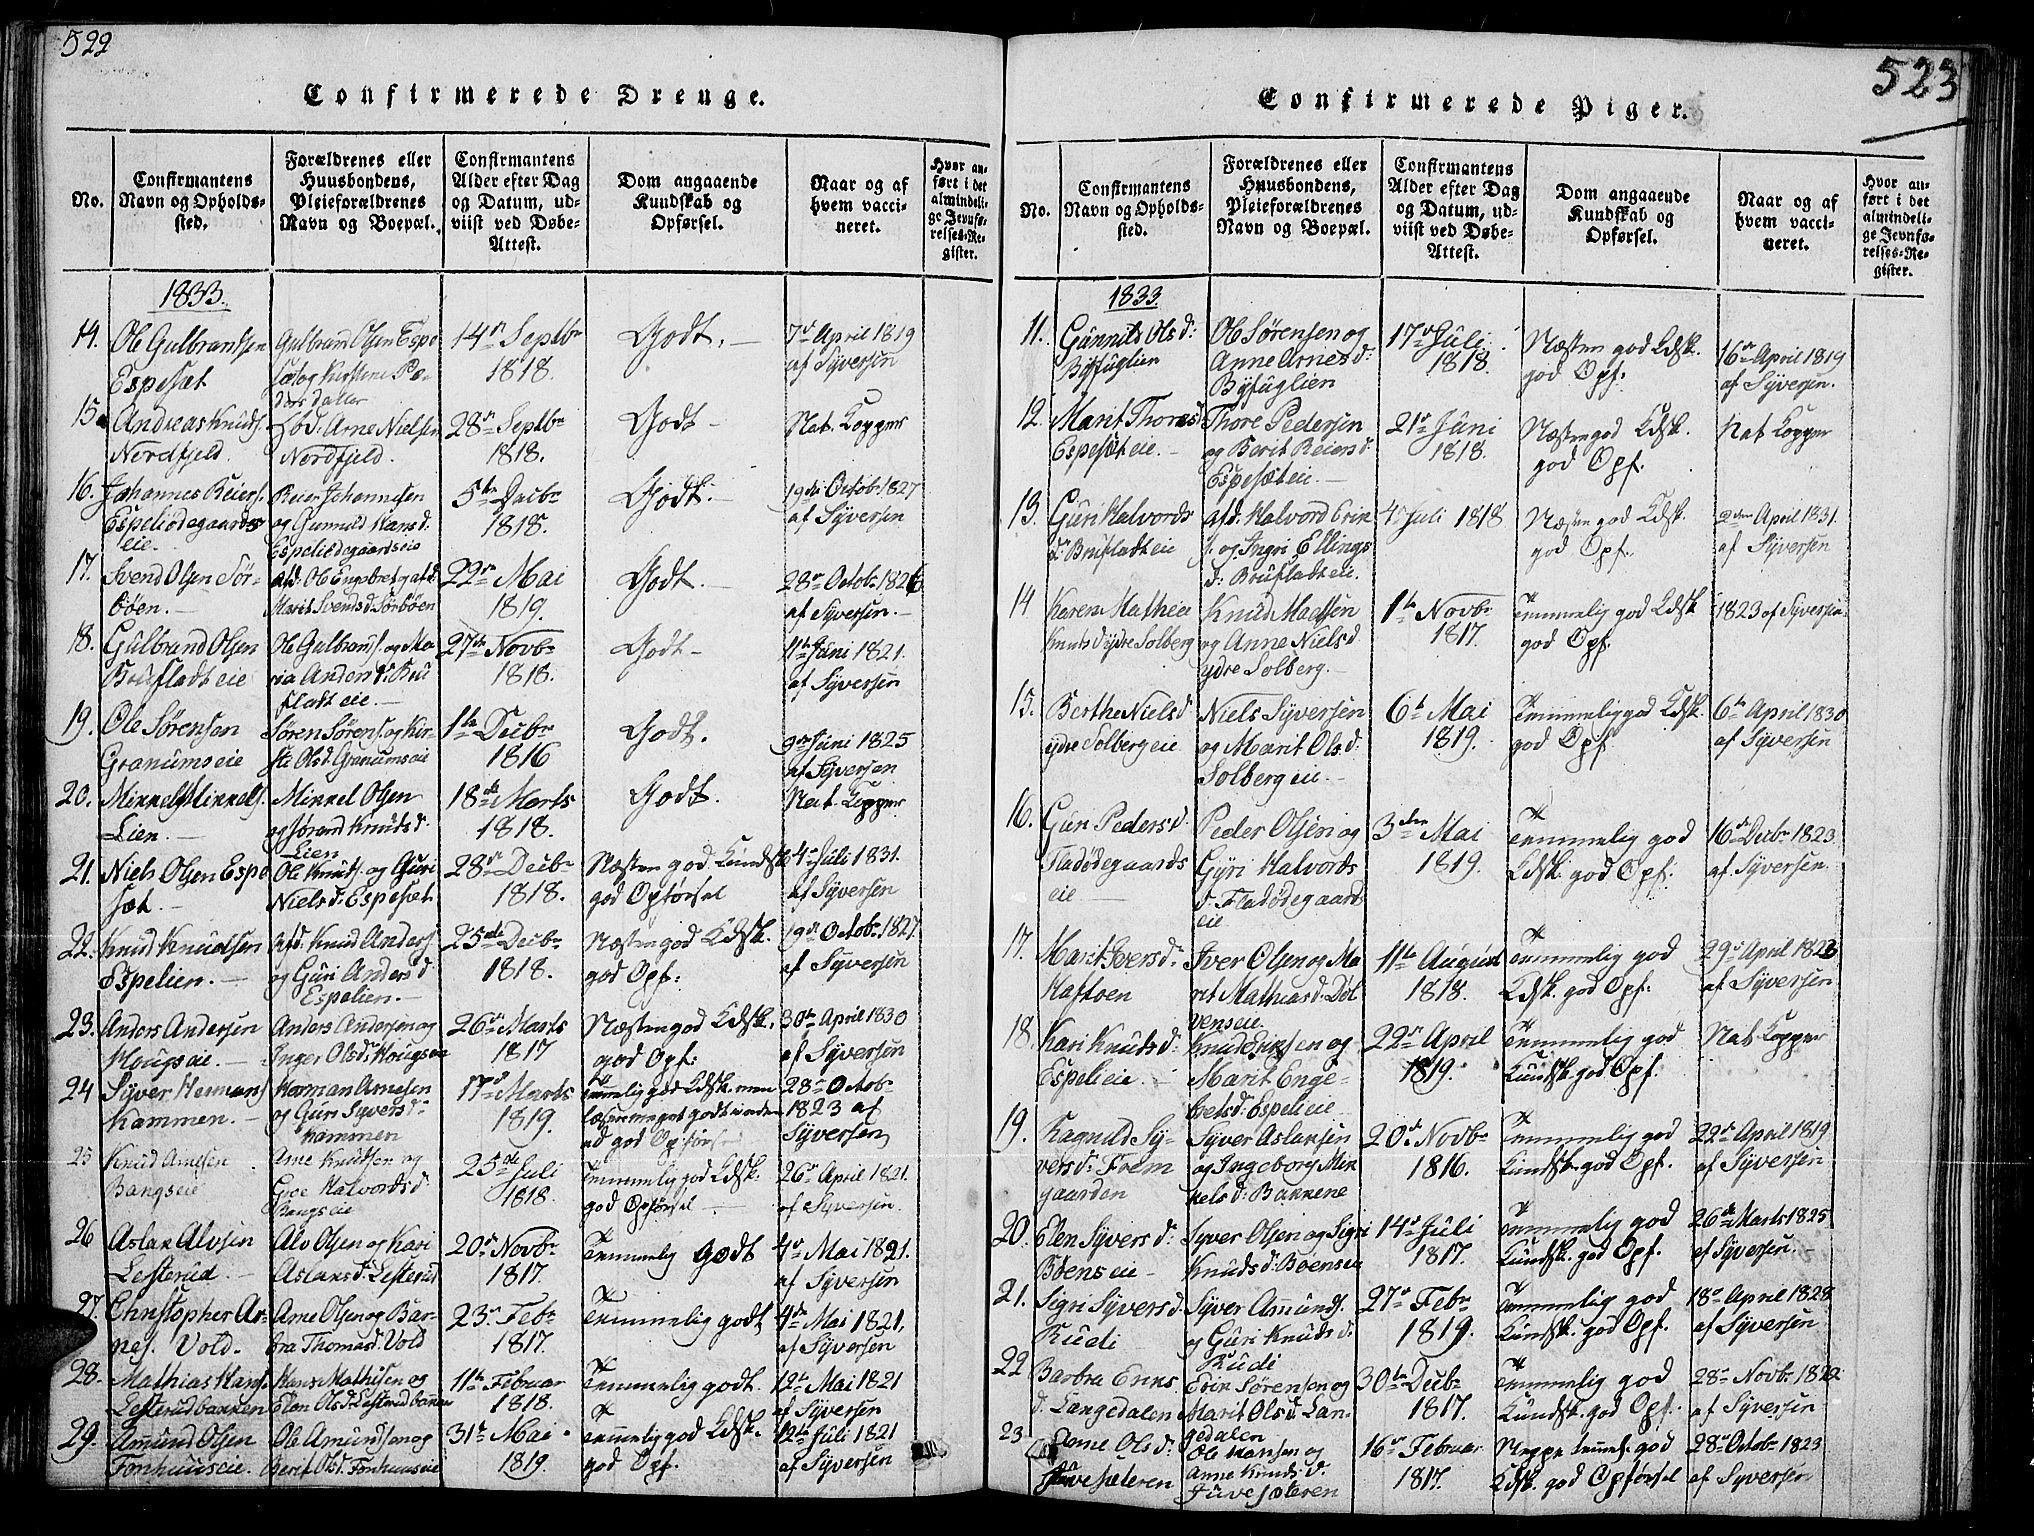 522
Confirmerede Drenge.
No.
Confirmantens
Navn og Opholds-
sted.
Forældrenes eller
Huusbondens,
Pleieforældrenes
Navn og Boepæl.
Confirmantens
Alder efter Dag
og Datum, ud-
viist ved Døbe-
Attest.
Dom angaaende
Kundskab og
Opførsel.
Naar og af
hvem vacci-
neret.
Hvor an-
ført i det
almindeli-
ge Jevnfø-
relses-Re-
gister.
1833.
14.
Ole Gulbrandsen
Espesæt
Gulbrand Olsen Espe
sæt og Kirstine Pe-
ders datter
14de Septbr
1818.
Godt. —
7de April 1819
af Syversen
15.
Andreas Knuds.
Nordfjeld.
Arne Nielsen
Nordfjeld.
28de Septbr
1818.
Godt —
Nat. Kopper
16.
Johannes Reiers.
Espeliødegaards
eie. —
Reier Johannesen
og Gunnild Hansd:
Espeliødegaardseie
5te Decbr
1818.
Godt. —
19de Octob. 1827
af Syversen
17.
Svend Olsen Sør-
bøen. —
afd: Ole Engebret. og afd:
Marit Svendsd. Sørbøen
22de Mai
1819.
Godt. —
28de Octobr 1826
af Syversen. —
18.
Gulbrand Olsen
Brufladteie
Ole Gulbrands. og Ma-
ria Andersd: Bru
fladteie. —
27de Novbr
1818.
Godt —
11te Juni 1821.
af Syversen
19.
Ole Sørensen
Granumseie
Søren Sørens. og Kir-
sti Olsd. Granumseie
1te Decbr
1816
Godt.
9de Juni 1825
af Syversen
20.
Mikkel Mikkels.
Lien. —
Mikkel Olsen
og Jørand Knudsd.
Lien
18de Marts
1818.
Godt.
Nat. Kopper
21.
Niels Olsen Espe
sæt. —
Ole Knuds. og Guri
Nielsd: Espesæt
28de Decbr
1818.
Næsten god Kundsk
god Opførsel
4de Juli 1831.
af Syversen
22.
Knud Knudsen
Espelien. —
afd. Knud Anders.
og Guri Andersd
Espelien. —
25de Decbr
1818.
Næsten god Kdsk.
god Opf:
19de Octob. 1827.
af Syversen
23.
Anders Andersen
Hougseie. —
Anders Andersen og
Inger Olsd: Hougseie
26de Marts
1817
Næsten god Kdsk.
god Opf:
30te April 1830
af Syversen
24
Syver Hermans.
Kammen. —
Herman Arnesen
og Guri Syversd:
Kammen
17de Marts
1819.
Temmelig god Kdsk. men
læser meget godt inden
ad god Opførsel
28de Octob.
1823 af
Syversen
25
Knud Arnesen
Bangseie
Arne Knudsen og
Groe Halvordsd
Bangseie
25de Juli
1818.
Temmelig god Kdsk.
god Opførsel —
26de April 1821.
af Syversen.
26
Aslak Alvsen
Lesterud. —
Alv Olsen og Kari
Aslaksd: Lesterud
20de Novbr
1817.
Temmelig Godt
4de Mai 1821.
af Syversen
27.
Christopher Ar-
nes. Vold.
Arne Olsen og Bar-
bra Thomasd: Vold
23de Febr
1817.
Temmelig godt
4de Mai 1821.
af Syversen
28.
Mathias Hans.
Lesterudbakken
Hans Mathisen og
Elen Olsd: Lesterudbakken
11te Februar
1818.
Temmelig godt.
12te Mai 1821
af Syversen
29.
Amund Olsen
Fonhuuseie.
Ole Amundsen og
Berit Olsd. Fonhuuseie
31te Mai.
1819.
Temmelig god Kdsk.
god Opf.
12te Juli 1821
af Syversen
523
Confirmerede Piger.
No.
Confirmantens
Navn og Opholds-
sted.
Forældrenes eller
Huusbondens,
Pleieforældrenes
Navn og Boepæl.
Confirmantens
Alder efter Dag
og Datum, ud-
viist ved Døbe-
Attest.
Dom angaaende
Kundskab og
Opførsel.
Naar og af
hvem vacci-
neret.
Hvor an-
ført i det
almindeli-
ge Jevnfø-
relses-Re-
gister.
1833.
11.
Gunnild Olsd:
Byfuglien
Ole Sørensen og
Anne Arnesd:
Byfuglien
17de Juli
1818.
Næsten god Kdsk.
god Opf:
16de April 1819
af Syversen.
12.
Marit Thoresd
Espesæteie. —
Thore Pedersen
og Berit Reiersd.
Espesæteie. —
21de Juni
1818.
Næsten god Kdsk.
god Opf.
Nat Kopper
13.
Guri Halvords
d. Brufladteie
afd: Halvord Erik
s. og Ingri Ellings
d: Brufladteie.
4de Juli 1818
Næsten god Kdsk.
god Opf.
2den April 1831.
af Syversen
14
Karen Mathea
Knutsd ydre Solberg
Knud Madsen
og Anne Nielsd.
ydre Solberg. —
1te Novbr
1817.
Temmelig god Kdsk
god Opf.
1823 af Syversen
15.
Berthe Nielsd
ydre Solbergeie
Niels Syversen
og Marit Olsd:
Solbergeie. —
6te Mai
1819.
Temmelig god Kdsk.
god Opf.
6te April 1830
af Syversen
16.
Guri Pedersd.
Fladødegaards
eie —
Peder Olsen og
Gyri Halvords
d. Fladødegaards
eie
3den Mai
1819.
Temmelig god
Kdsk. god Opf:
16de Decbr 1823.
af Syversen.
17.
Marit Iversd.
Haftven
Iver Olsen og Ma
rit Mathiasd: Døl
venseie
11te August
1818.
Temmelig god
Kdsk. god Opf:
29de April 1823
af Syversen
18.
Kari Knudsd:
Espelieie. —
Knud Eriksen og
Marit Enge-
bretsd: Espelieie
22de April
1819.
Temmelig god
Kundsk. god Opf.
Nat Kopper
19.
Ragnild Sy-
versd: Frem
gaarden
Syver Aslaksen
og Ingeborg Mik
kelsd: Bakkene
20de Novbr
1816.
Temmelig god
Kundsk. god Opf.
22de April 1819
af Syversen
20.
Elen Syversd:
Bøenseie —
Syver Olsen og Sigri
Knudsd: Bøenseie
14de Juli
1817.
Temmelig god
Kundsk. god Opf.
26de Marts 1825
af Syversen.
21.
Sigri Syversd.
Rudi
Syver Amunds.
og Guri Knudsd:
Rudi
27de Febr
1819.
Temmelig god
Kundsk. god Opf.
18de April 1828
af Syversen
22
Barbra Eriks
d. Langedalen
Erik Sørensen og
Marit Olsd. Lan-
gedalen
30te Decbr
1817.
Temmelig god
Kundsk. god Opf.
28de Novbr 1822
af Syversen
23
Anne Olsd:
Juvesæteren
Ole Hansen og
Anne Knudsd.
Juvesæteren
16de Februar
1817.
Neppe temmel. god
Kdsk. god Opførsel
28de Octobr 1823
af Syversen